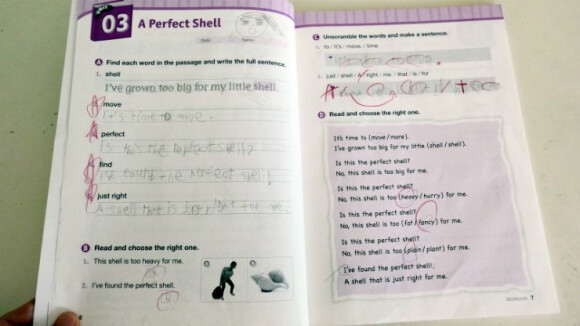 UNIT
03 A Perfect Shell
Date Name
A Find each word in the passage and write the full sentence.
1. shell
I've grown too big for my little shell.
move
perfect
find
just right
A shell that is just right for me.
B Read and choose the right one.
1. This shell is too heavy for me.
2. I've found the perfect shell.
6
C Unscramble the words and make a sentence.
1. to / it's / move / time
2. just / shell / A / right / me / that / is / for
D Read and choose the right one.
It's time to (move / more).
I've grown too big for my little (shell / shell).
Is this the perfect shell?
No, this shell is too big for me.
Is this the perfect shell?
No, this shell is too (heavy / hurry) for me.
Is this the perfect shell?
No, this shell is too (fat / fancy) for me.
Is this the perfect shell?
No, this shell is too (plain / plant) for me.
I've found the perfect shell!
A shell that is just right for me.
Workbook 7